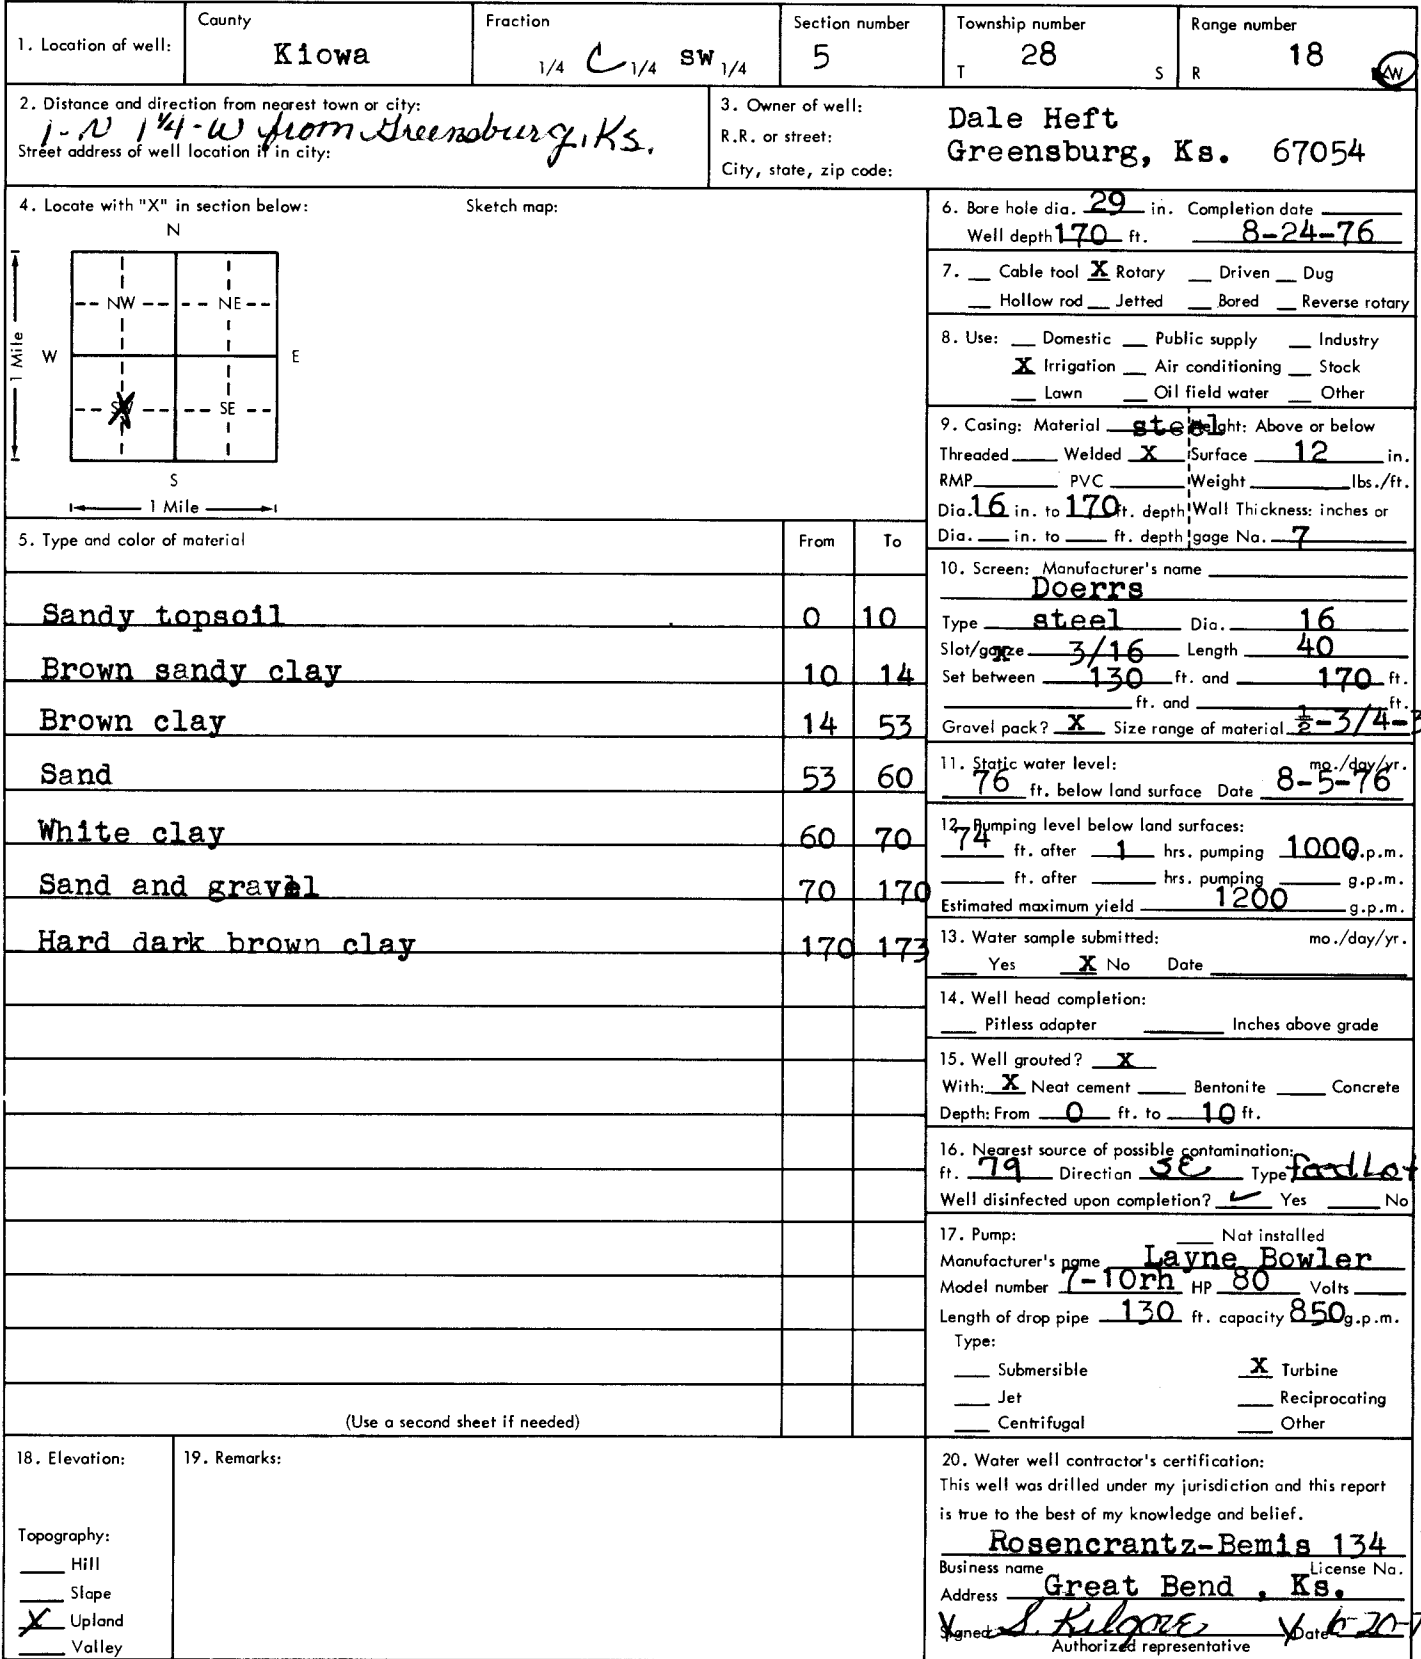 1. Location of well:
County
Kiowa
Fraction
1/4 C 1/4 SW 1/4
Section number
5
Township number
T 28 S
Range number
R 18 W
2. Distance and direction from nearest town or city:
1-N 1 1/4-W from Greensburg, Ks.
Street address of well location if in city:
3. Owner of well:
R.R. or street:
City, state, zip code:
Dale Heft
Greensburg, Ks. 67054
4. Locate with "X" in section below:
Sketch map:
N
NW NE
W E
1 Mile
SW SE
S
1 Mile
5. Type and color of material From To
Sandy topsoil 0 10
Brown sandy clay 10 14
Brown clay 14 53
Sand 53 60
White clay 60 70
Sand and gravel 70 170
Hard dark brown clay 170 173
(Use a second sheet if needed)
6. Bore hole dia. 29 in. Completion date
Well depth 170 ft. 8-24-76
7. Cable tool X Rotary Driven Dug
Hollow rod Jetted Bored Reverse rotary
8. Use: Domestic Public supply Industry
X Irrigation Air conditioning Stock
Lawn Oil field water Other
9. Casing: Material steel Height: Above or below
Threaded Welded X Surface 12 in.
RMP PVC Weight lbs./ft.
Dia. 16 in. to 170 ft. depth Wall Thickness: inches or
Dia. in. to ft. depth gage No. 7
10. Screen: Manufacturer's name
Doerrs
Type steel Dia. 16
Slot/gauze 3/16 Length 40
Set between 130 ft. and 170 ft.
ft. and ft.
Gravel pack? X Size range of material ½-3/4-3
11. Static water level: mo./day/yr.
76 ft. below land surface Date 8-5-76
12. Pumping level below land surfaces:
74 ft. after 1 hrs. pumping 1000 g.p.m.
ft. after hrs. pumping g.p.m.
Estimated maximum yield 1200 g.p.m.
13. Water sample submitted: mo./day/yr.
Yes X No Date
14. Well head completion:
Pitless adapter Inches above grade
15. Well grouted? X
With: X Neat cement Bentonite Concrete
Depth: From 0 ft. to 10 ft.
16. Nearest source of possible contamination:
ft. 79 Direction SE Type feed Lot
Well disinfected upon completion? ✓ Yes No
17. Pump: Not installed
Manufacturer's name Layne Bowler
Model number 7-10rh HP 80 Volts
Length of drop pipe 130 ft. capacity 850 g.p.m.
Type:
Submersible X Turbine
Jet Reciprocating
Centrifugal Other
18. Elevation:
Topography:
Hill
Slope
X Upland
Valley
19. Remarks:
20. Water well contractor's certification:
This well was drilled under my jurisdiction and this report
is true to the best of my knowledge and belief.
Rosencrantz-Bemis 134
Business name License No.
Address Great Bend, Ks.
Signed S. Kilgore Date
Authorized representative